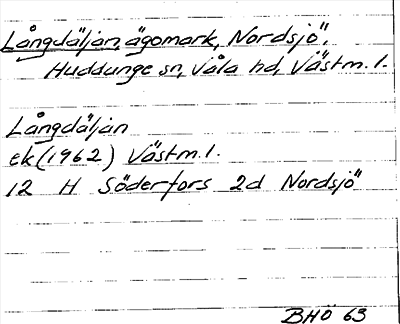 Långdäljan, ägomark, Nordsjö,
Huddunge sn, Våla hd, Västm. l.
Långdäljan
ek (1962) Västm. l.
12 H Söderfors 2d Nordsjö
BHÖ 63